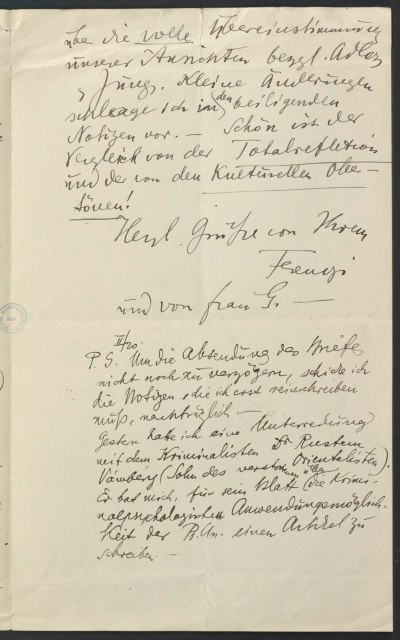 übe die volle Übereinstimmung
unserer Ansichten bezgl. Adler,
Jung. Kleine Änderungen
schlage ich in den beiligenden
Notizen vor. — Schön ist der
Vergleich von der Totalreflexion
und der von den Kulturellen Ober-
tönen!
Herzl. Grüße von Ihrem
Ferenczi
und von Frau G. —
II/20
P.S. Um die Absendung des Briefes
nicht noch zu verzögern, schicke ich
die Notizen, die ich erst reinschreiben
muß, nachträglich —
Gestern hatte ich eine Unterredung
mit dem Kriminalisten Dr Rustem
Vámbéry (Sohn des verstorbenen Orientalisten).
Er bat mich, für sein Blatt über die Krimi-
nalpsychologischen Anwendungsmöglich-
keit der Ps.An. einen Artikel zu
schreiben. —